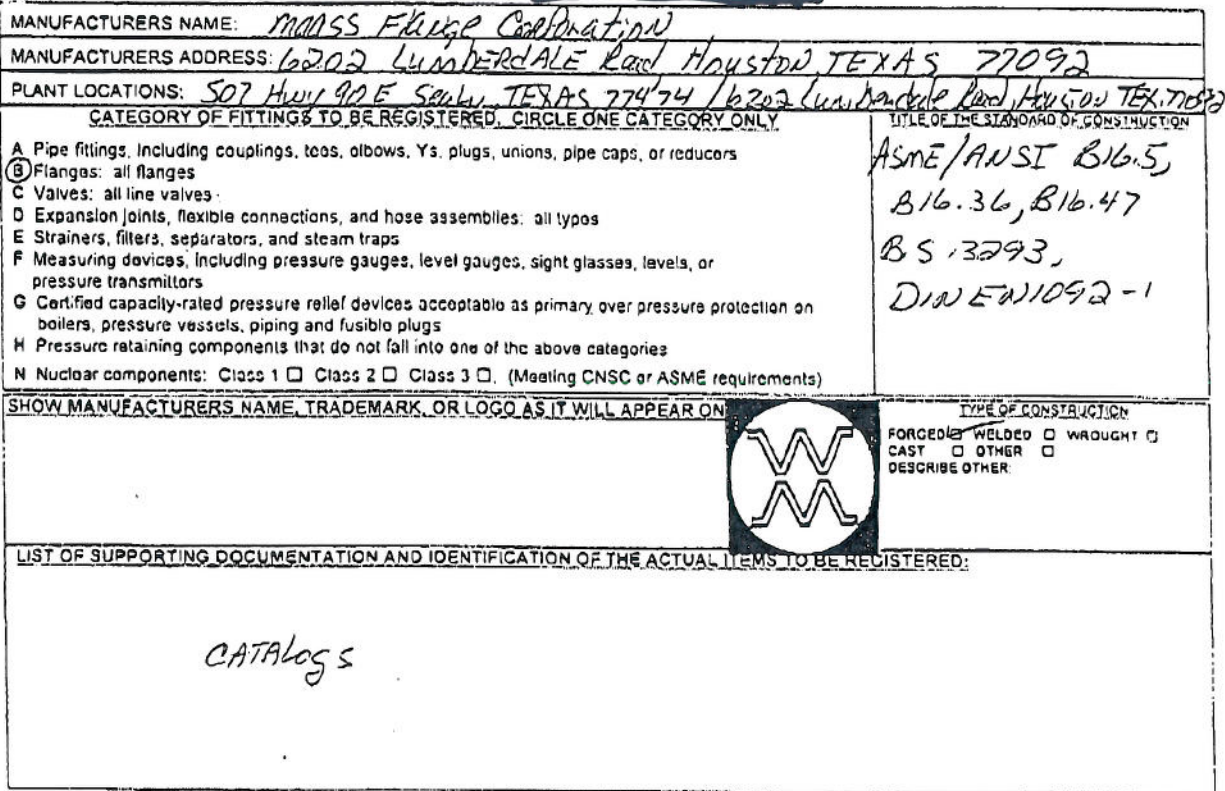 MANUFACTURERS NAME: MAASS Flange Corporation
MANUFACTURERS ADDRESS: 6202 LumbERdALE Road Houston TEXAS 77092
PLANT LOCATIONS: 507 Hwy 90 E Sealy, TEXAS 77474 / 6202 Lumberdale Road, Houston TEX. 77092
CATEGORY OF FITTINGS TO BE REGISTERED, CIRCLE ONE CATEGORY ONLY
A Pipe fittings, including couplings, tees, elbows, Ys, plugs, unions, pipe caps, or reducers
B Flanges: all flanges
C Valves: all line valves
D Expansion joints, flexible connections, and hose assemblies: all types
E Strainers, filters, separators, and steam traps
F Measuring devices, including pressure gauges, level gauges, sight glasses, levels, or
pressure transmitters
G Certified capacity-rated pressure relief devices acceptable as primary over pressure protection on
boilers, pressure vessels, piping and fusible plugs
H Pressure retaining components that do not fall into one of the above categories
N Nuclear components: Class 1 ☐ Class 2 ☐ Class 3 ☐. (Meeting CNSC or ASME requirements)
TITLE OF THE STANDARD OF CONSTRUCTION
ASME/ANSI B16.5,
B16.36, B16.47
BS.3293,
DIN EN1092-1
SHOW MANUFACTURERS NAME, TRADEMARK, OR LOGO AS IT WILL APPEAR ON
W
M
TYPE OF CONSTRUCTION
FORGED ☑ WELDED ☐ WROUGHT ☐
CAST ☐ OTHER ☐
DESCRIBE OTHER:
LIST OF SUPPORTING DOCUMENTATION AND IDENTIFICATION OF THE ACTUAL ITEMS TO BE REGISTERED:
CATALogs